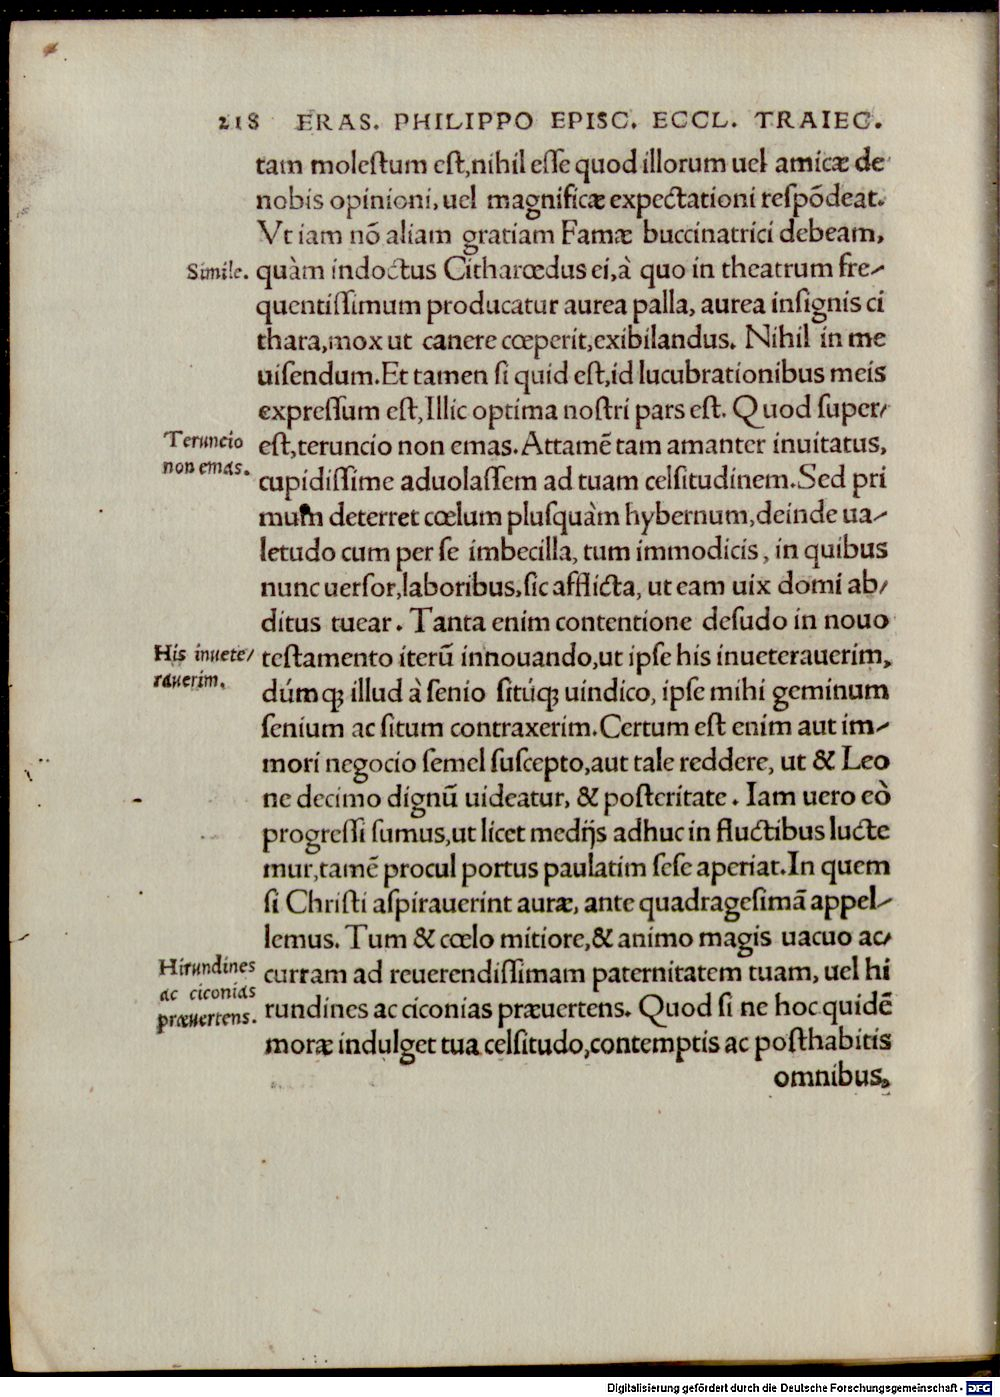 218 ERAS. PHILIPPO EPISC. ECCL. TRAIEC.
tam molestum est, nihil esse quod illorum uel amicæ de
nobis opinioni, uel magnificæ expectationi respõdeat.
Vt iam nõ aliam gratiam Famæ buccinatrici debeam,
Simile. quàm indoctus Citharœdus ei, à quo in theatrum fre-
quentissimum producatur aurea palla, aurea insignis ci
thara, mox ut canere cœperit, exibilandus. Nihil in me
uisendum. Et tamen si quid est, id lucubrationibus meis
expressum est, Illic optima nostri pars est. Quod super/
Teruncio est, teruncio non emas. Attamẽ tam amanter inuitatus,
non emas. cupidissime aduolassem ad tuam celsitudinem. Sed pri
mum deterret cœlum plusquàm hybernum, deinde ua-
letudo cum per se imbecilla, tum immodicis, in quibus
nunc uersor, laboribus, sic afflicta, ut eam uix domi ab/
ditus tuear. Tanta enim contentione desudo in nouo
His inuete/ testamento iterũ innouando, ut ipse his inueterauerim,
rauerim. dúmqꝫ illud à senio sitúqꝫ uindico, ipse mihi geminum
senium ac situm contraxerim. Certum est enim aut im-
mori negocio semel suscepto, aut tale reddere, ut & Leo
ne decimo dignũ uideatur, & posteritate. Iam uero eò
progressi sumus, ut licet medijs adhuc in fluctibus lucte
mur, tamẽ procul portus paulatim sese aperiat. In quem
si Christi aspirauerint auræ, ante quadragesimã appel-
lemus. Tum & cœlo mitiore, & animo magis uacuo ac/
Hirundines curram ad reuerendissimam paternitatem tuam, uel hi
ac ciconias rundines ac ciconias præuertens. Quod si ne hoc quidẽ
præuertens. moræ indulget tua celsitudo, contemptis ac posthabitis
omnibus,
Digitalisierung gefördert durch die Deutsche Forschungsgemeinschaft - DFG